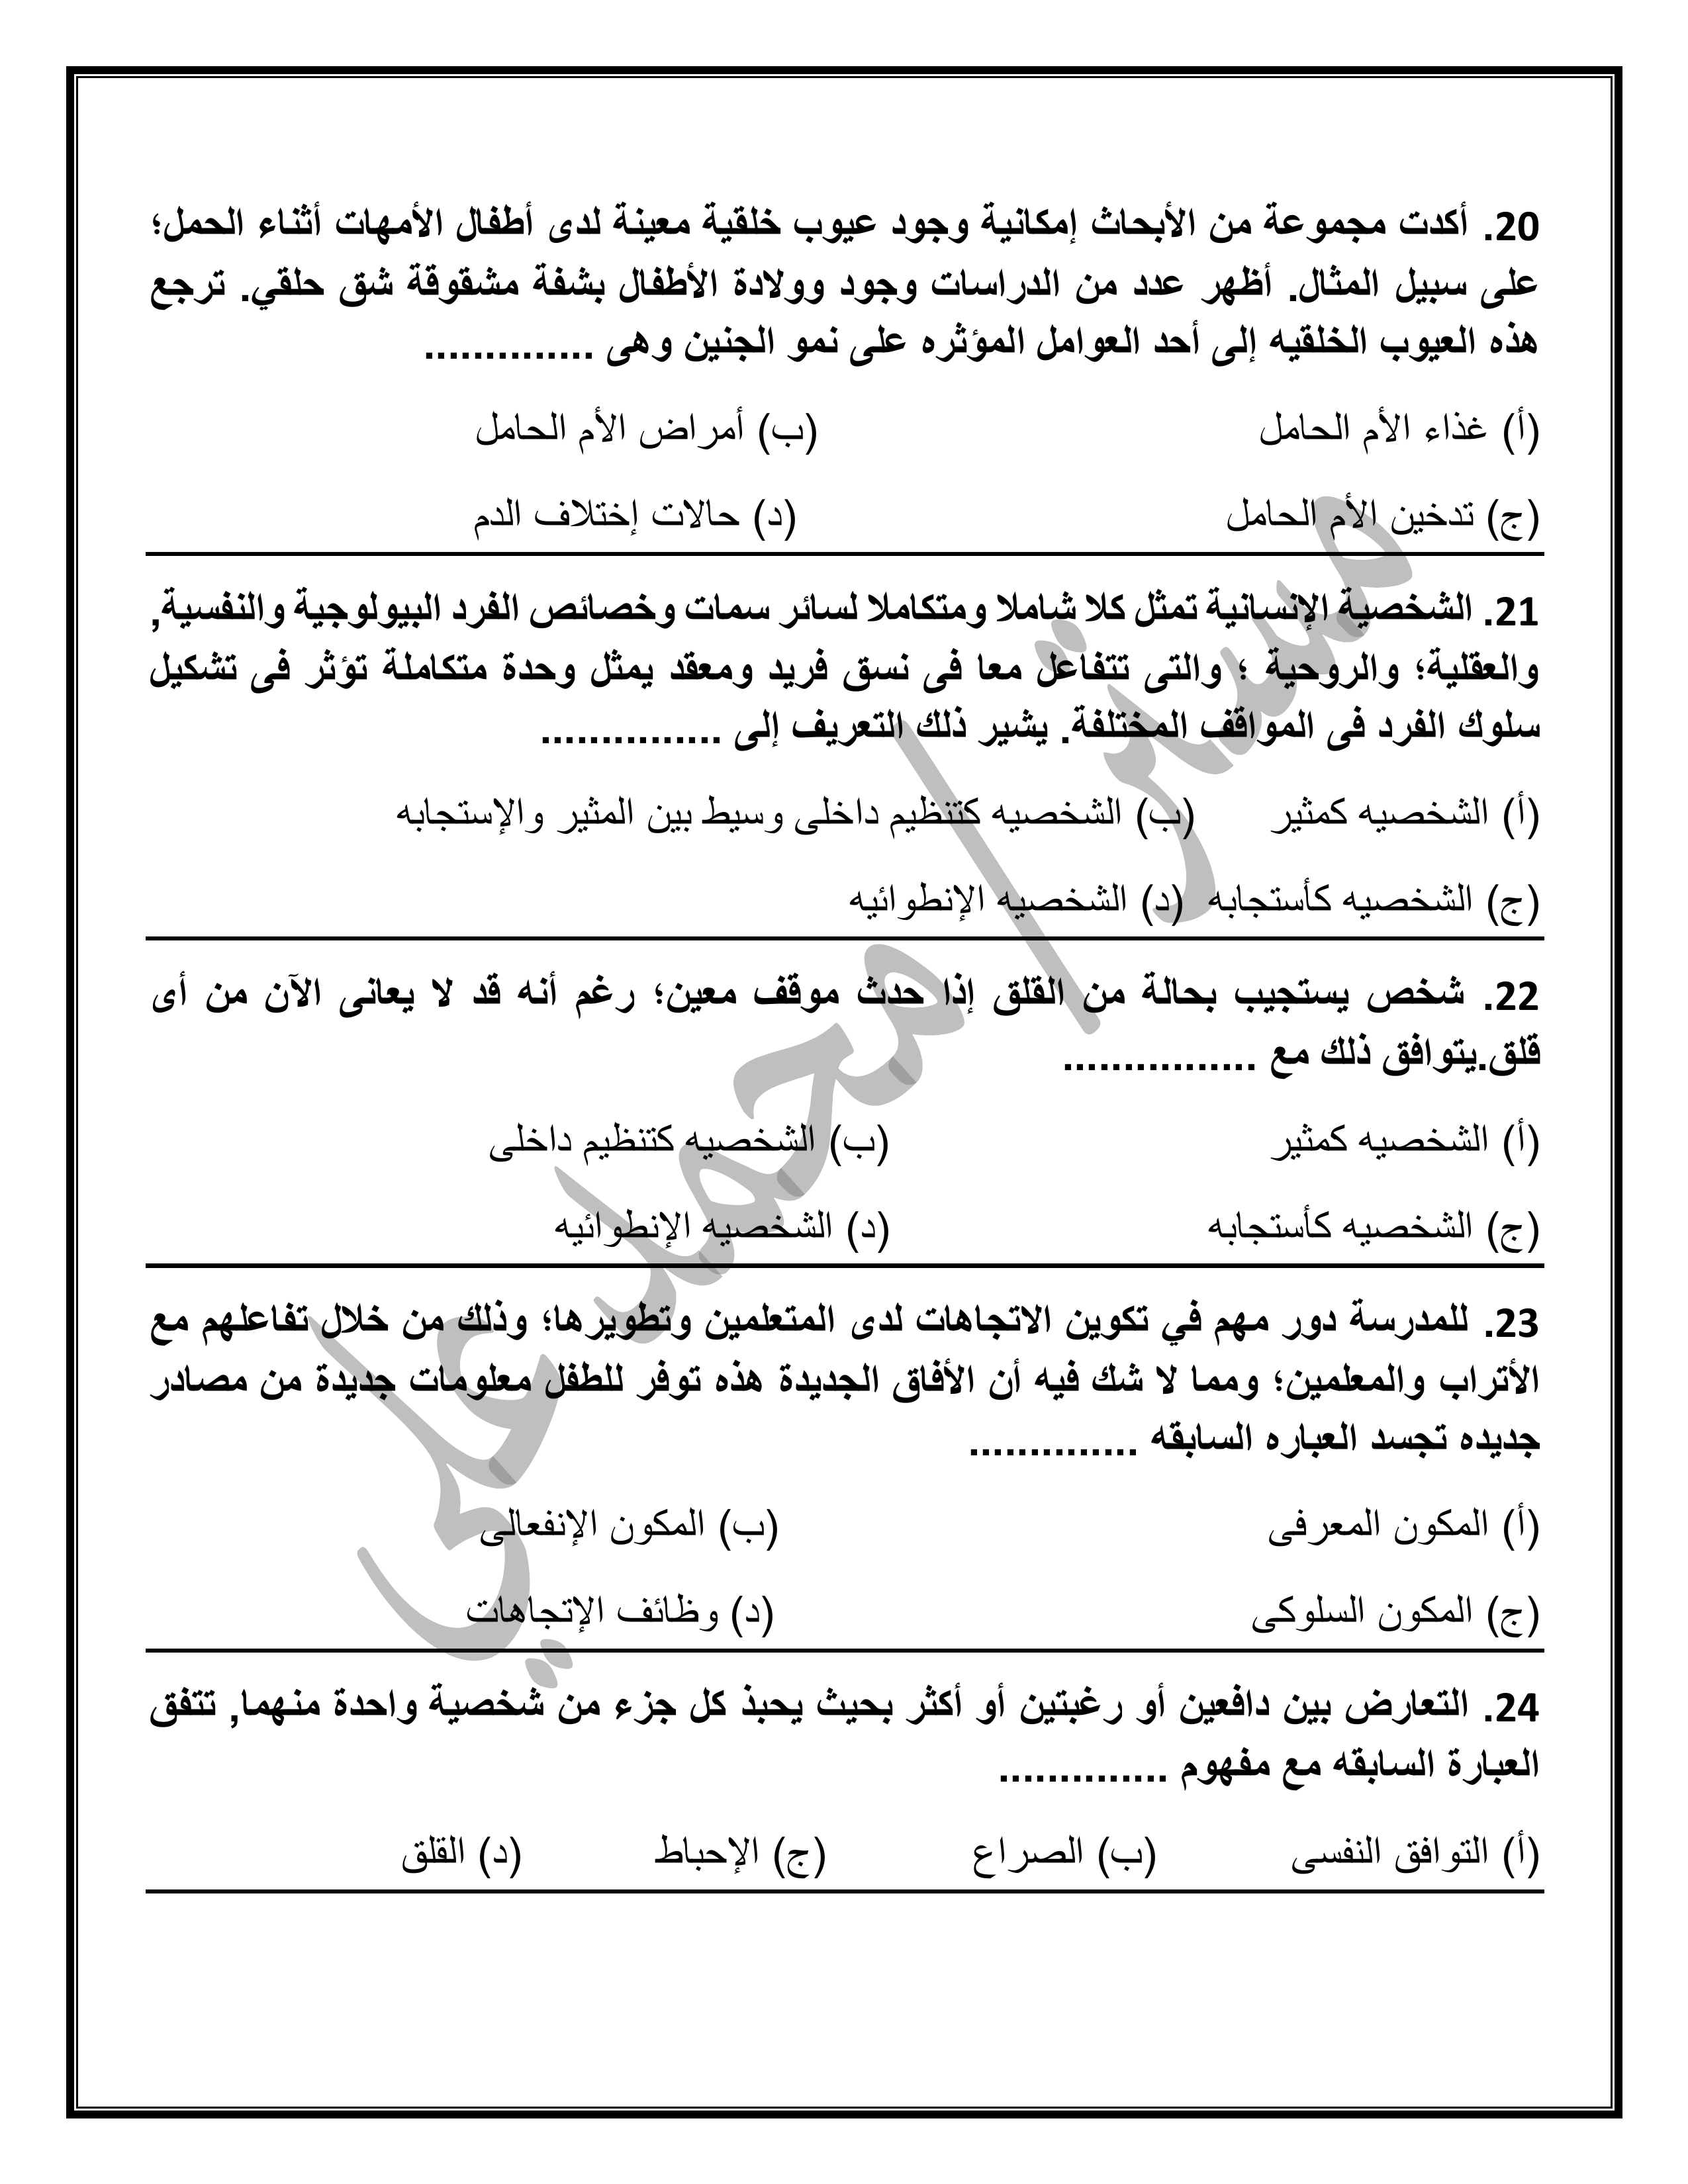 20. أكدت مجموعة من الأبحاث إمكانية وجود عيوب خلقية معينة لدى أطفال الأمهات أثناء الحمل؛
على سبيل المثال. أظهر عدد من الدراسات وجود وولادة الأطفال بشفة مشقوقة شق حلقي. ترجع
هذه العيوب الخلقيه إلى أحد العوامل المؤثره على نمو الجنين وهى ..............
(أ) غذاء الأم الحامل (ب) أمراض الأم الحامل
(ج) تدخين الأم الحامل (د) حالات إختلاف الدم
21. الشخصية الإنسانية تمثل كلا شاملا ومتكاملا لسائر سمات وخصائص الفرد البيولوجية والنفسية,
والعقلية؛ والروحية ؛ والتى تتفاعل معا فى نسق فريد ومعقد يمثل وحدة متكاملة تؤثر فى تشكيل
سلوك الفرد فى المواقف المختلفة. يشير ذلك التعريف إلى ...............
(أ) الشخصيه كمثير (ب) الشخصيه كتنظيم داخلى وسيط بين المثير والإستجابه
(ج) الشخصيه كأستجابه (د) الشخصيه الإنطوائيه
22. شخص يستجيب بحالة من القلق إذا حدث موقف معين؛ رغم أنه قد لا يعانى الآن من أى
قلق.يتوافق ذلك مع ................
(أ) الشخصيه كمثير (ب) الشخصيه كتنظيم داخلى
(ج) الشخصيه كأستجابه (د) الشخصيه الإنطوائيه
23. للمدرسة دور مهم في تكوين الاتجاهات لدى المتعلمين وتطويرها؛ وذلك من خلال تفاعلهم مع
الأتراب والمعلمين؛ ومما لا شك فيه أن الأفاق الجديدة هذه توفر للطفل معلومات جديدة من مصادر
جديده تجسد العباره السابقه ..............
(أ) المكون المعرفى (ب) المكون الإنفعالى
(ج) المكون السلوكى (د) وظائف الإتجاهات
24. التعارض بين دافعين أو رغبتين أو أكثر بحيث يحبذ كل جزء من شخصية واحدة منهما, تتفق
العبارة السابقه مع مفهوم ..............
(أ) التوافق النفسى (ب) الصراع (ج) الإحباط (د) القلق
مستر/ محمد علي